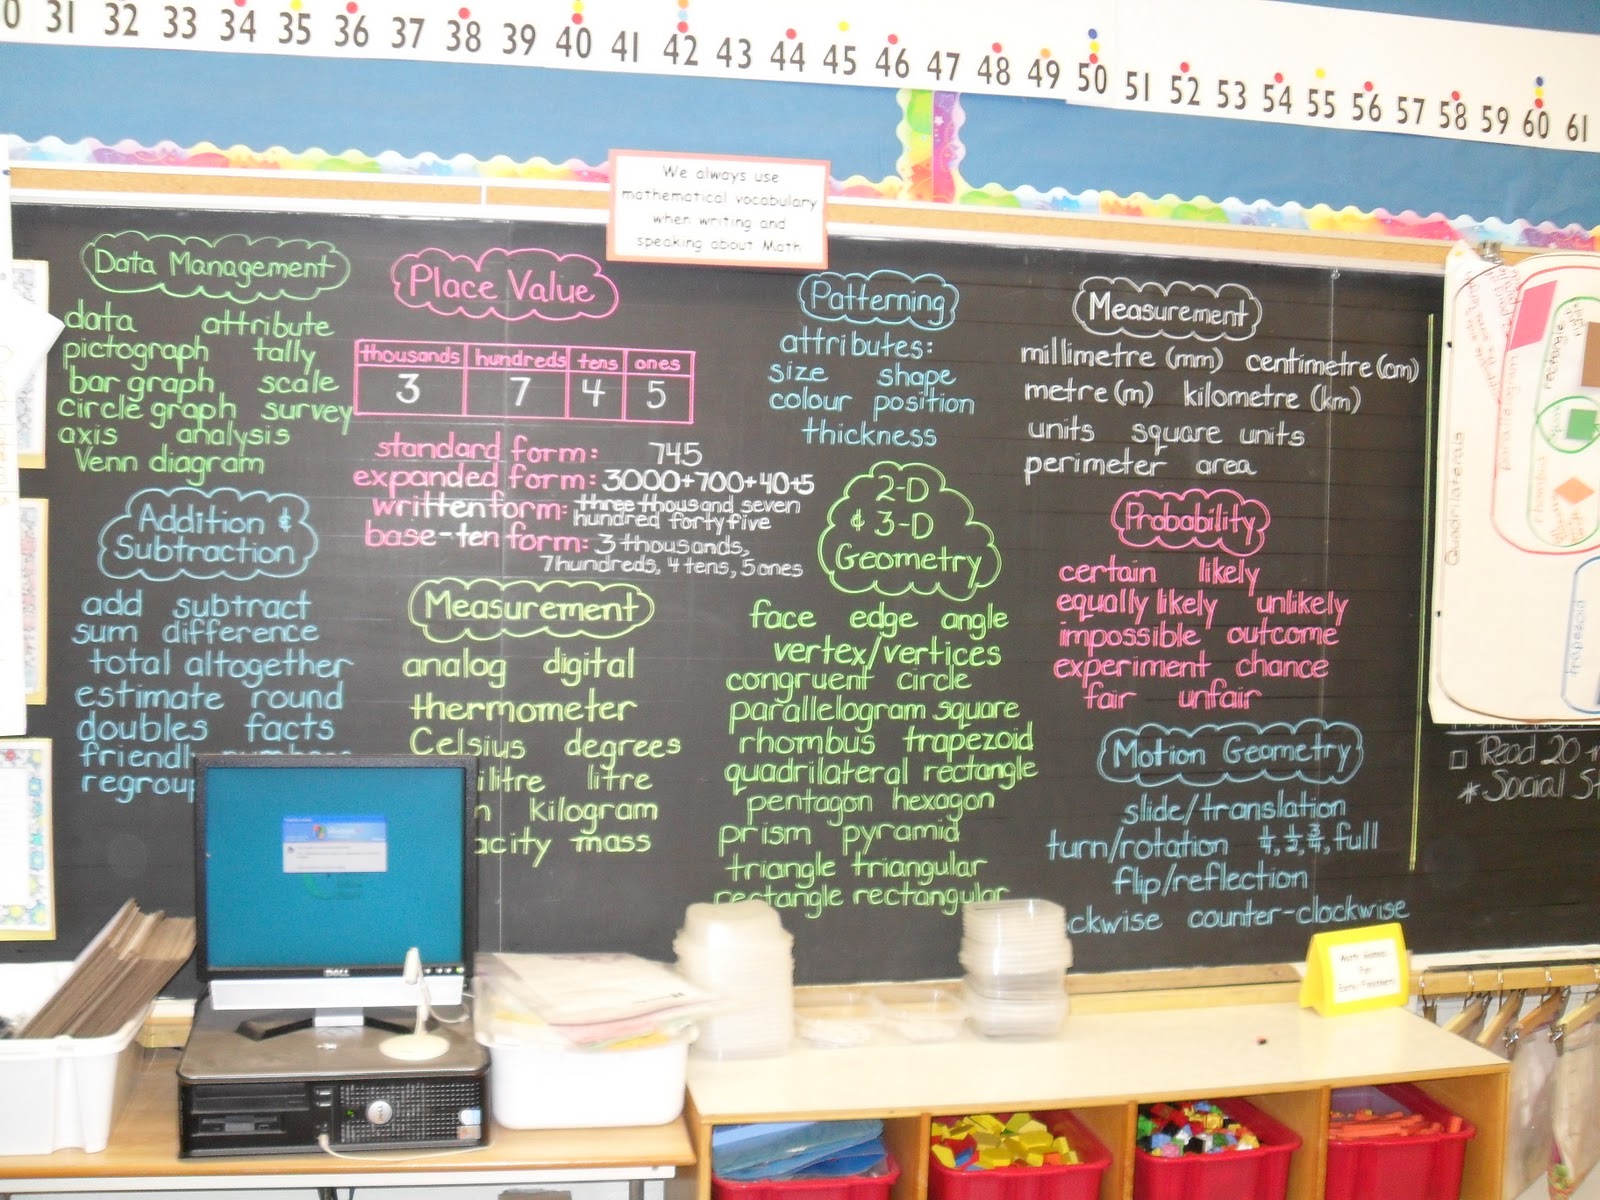 31 32 33 34 35 36 37 38 39 40 41 42 43 44 45 46 47 48 49 50 51 52 53 54 55 56 57 58 59 60 61
We always use
mathematical vocabulary
when writing and
speaking about Math
Data Management
data attribute
pictograph tally
bar graph scale
circle graph survey
axis analysis
Venn diagram
Addition &
Subtraction
add subtract
sum difference
total altogether
estimate round
doubles facts
friendly numbers
regroup
Place Value
thousands hundreds tens ones
3 7 4 5
standard form: 745
expanded form: 3000+700+40+5
written form: three thousand seven
hundred forty five
base-ten form: 3 thousands,
7 hundreds, 4 tens, 5 ones
Measurement
analog digital
thermometer
Celsius degrees
ilitre litre
kilogram
acity mass
Patterning
attributes:
size shape
colour position
thickness
2-D
& 3-D
Geometry
face edge angle
vertex/vertices
congruent circle
parallelogram square
rhombus trapezoid
quadrilateral rectangle
pentagon hexagon
prism pyramid
triangle triangular
rectangle rectangular
Measurement
millimetre (mm) centimetre (cm)
metre (m) kilometre (km)
units square units
perimeter area
Probability
certain likely
equally likely unlikely
impossible outcome
experiment chance
fair unfair
Motion Geometry
slide/translation
turn/rotation ¼, ½, ¾, full
flip/reflection
ckwise counter-clockwise
Quadrilaterals
rectangle
trapezoid
Read 20
* Social St
Math Games
For
Early Finishers
DELL